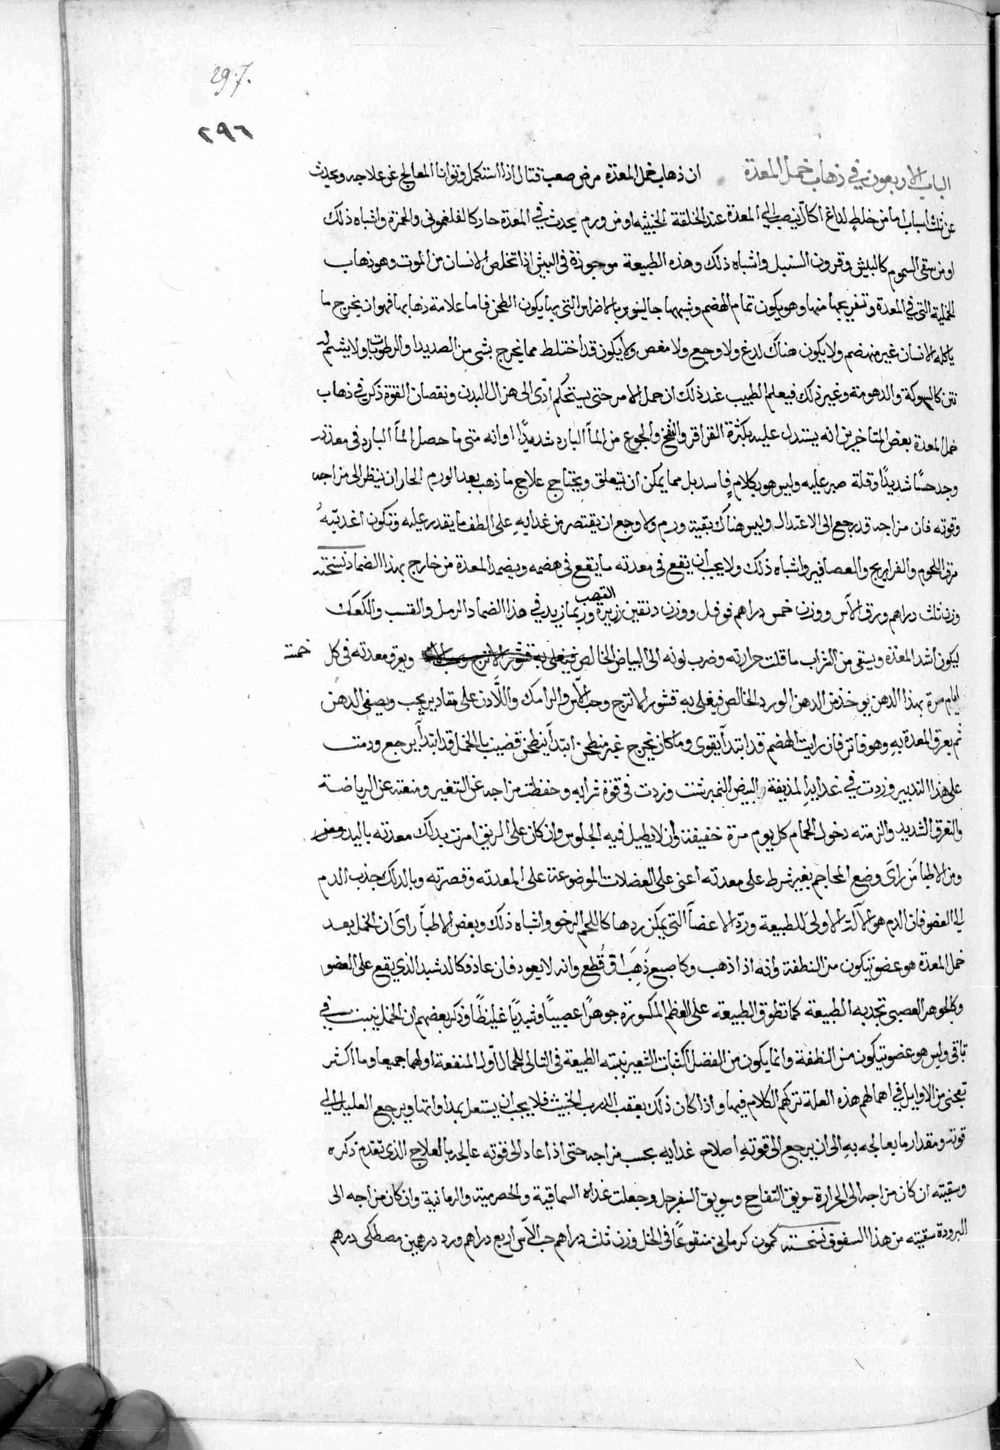 297.
٢٩٦
الباب الاربعون في ذهاب خمل المعدة ان ذهاب خمل المعدة مرض صعب قتال اذا استكمل وتوانا المعالج عن علاجه ويحدث
عن ثلث اسباب اما من خلط لداغ اكال ينصب الي المعدة عند الخلفة الخبيثه او من ورم يحدث في المعدة حار كالفلغموني والحمرة واشباه ذلك
او من سقي السموم كالبيش وقرون السنبل واشباه ذلك وهذه الطبيعة موجودة في البيش اذا تخلص الانسان من الموت وهو ذهاب
الخملية التي في المعدة وبها يكون تمام الهضم وشبهها جالينوس بالاضراس التي بها يكون الطحن فاما علامة ذهابها فهو ان يخرج ما
ياكله الانسان غير منهضم ولا يكون هناك لدغ ولا وجع ولا مغص ولا يكون قد اختلط مما يخرج بشي من الصديد والرطوبات ولا يشتم له
نتن كالسهوكة والدهومة وغير ذلك فيعلم الطبيب عند ذلك ان خمل الامر حتى يستحكم ادى الى هزال البدن ونقصان القوة ذكر في ذهاب
خمل المعدة بعض المتاخرين انه يستدل عليه بكثرة القراقر والنفخ والجوع من الماء البارد شديدًا او انه متى ما حصل الماء البارد في معدته
وجد حسًا شديدًا وقلة صبر عليه وليس هو بكلام فاسد بل مما يمكن ان يتعلق ويحتاج علاج ما ذهب بعد الورم الحار ان ينظر الى مزاجه
وقوته فان مزاجه قد رجع الى الاعتدال وليس هناك بقية ورم ولا وجع ان يقتصر من غدايه على الطف ما يقدر عليه وتكون اغديته
مرق اللحوم والفراريج والعصافير واشباه ذلك ولا يجب أن يقع في معدته ما يقع في هضمه ويضمد المعدة من خارج بهذا الضماد نسخته
وزن ثلث دراهم ورق الآس ووزن خمس دراهم فوفل ووزن دنقين زريرة القصب وربما زيد في هذا الضماد الرمل والقسب والكعك
ليكون اشد المعدة ويسقى من الشراب ما قلت حرارته وضرب لونه الى البياض الخالص فيغلى به قشور الاترج ويعرق معدته في كل خمسة
ايام مرة بهذا الدهن يوخذ من الدهن الورد الخالص فيغلى به قشور الاترج وحب الآس والرامك واللادن على مقادير يجب ويصفى الدهن
ثم يعرق المعدة به وهو فاتر فان رايت الهضم قد ابتدأ يقوى وما كان يخرج غير منطحن ابتدأ ينطحن قضيت بالخمل قد ابتدأ يرجع ودمت
على هذا التدبير وزدت في غدايه المديقة والبيض النمبرشت وزدت في قوة شرابه وحفظت مزاجه عن التغير ومنعته عن الرياضة
والتعرق الشديد والزمته دخول الحمام كل يوم مرة خفيفة وان لا يطيل فيه الجلوس وان كان على الريق امرت بدلك معدته باليد
ومن الاطباء من راى وضع المحاجم بغير شرط على معدته اعنى على العضلات الموضوعة على المعدة وقصرته وبالدلك جذب الدم
الى العضو فان الدم هو الآلة الاولى للطبيعة وردّ الاعضا التى يمكن ردها كاللحم الرخو واشباه ذلك وبعض الاطبا راى ان الخمل بعد
خمل المعدة هو عضو يتكون من النطفة وانه اذا ذهب وكاصبع ذهب او قُطع وانه لا يعود فان عاد فكالدشبد الذي يقع على العضو
وكالجوهر العصبى تجد به الطبيعة كما تطوق الطبيعة على العظم المكسورة جوهرًا عصبيًا غليظًا وذكر بعضهم ان الخمل ينبت
باقى وليس هو عضو يتكون من النطفة وانما يكون من الفضل كنبات الشعير نبته الطبيعة في التالى للجمال او للمنفعة او لهما جميعا وما اكثر
تعجبى من الاوايل في اهمالهم هذه العلة تركهم الكلام فيها واذا كان ذلك بعقب الدرب الخبيث فلا يجب ان يستعمل بمداواتها ويرجع العليل الى
قوته ومقدار ما يعالجه به الى ان يرجع الى قوته اصلاح غدايه بحسب مزاجه حتى اذا عاد الى قوته عالجه بالعلاج الذى تقدم ذكره
وسقيته ان كان مزاجه الى الحرارة سويق التفاح وسويق السفرجل وجعلت غداه السماقية والحصرمية والرمانية وان كان مزاجه الى
البرودة سقيته من هذا السفوف نسخته كمون كرمانى منقوعًا في الخل وزن ثلث دراهم حب الآس اربع دراهم ورد درهمين مصطكى درهم